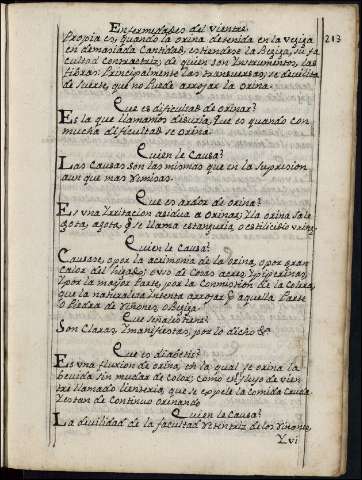 Enfermedades del Vientre. 213
Propia es, quando la orina detenida en la vegiga
en demasiada Cantidad, estendese la Begiga, su fa
cultad contractriz, de quien son Ynstrumentos, las
fibras Principalmente las transversas, se devilita
de suerte, que no Puede arrojar la orina.
Que es dificultad de orinar?
Es la que llamamos disuria, Que es quando con
mucha dificultad se orina.
Quien le Causa?
Las Causas son las mismas que en la Supresion
aun que mas remisas.
Que es ardor de orina?
Es vna Yrritacion asidua a orinar, Y la orina sale
gota, agota, q se llama estanguria, o estilicidio vrine
Quien le Causa?
Causase, o por la acrimonia de la orina, o por gran
Calor del higado, o vso de Cosas acres, Y piperinas,
Y por la mayor Parte, por la Conmostion de la Colera,
que la naturaleza Yntenta arrojar Pr aquella Parte
o Piedra de riñones, o Begiga.
Que señales tiene?
Son Claras, Y manifiestas, por lo dicho &
Que es diabetis?
Es vna fluxion de orina, en la qual se orina la
bevida sin mudar de Color, Como en fluxo de vien
tre llamado lienteria, que se espele la Comida Cruda
Y estan de Continuo orinando
Quien le Causa?
La divilidad de la facultad retentriz de los riñones,
Y vi